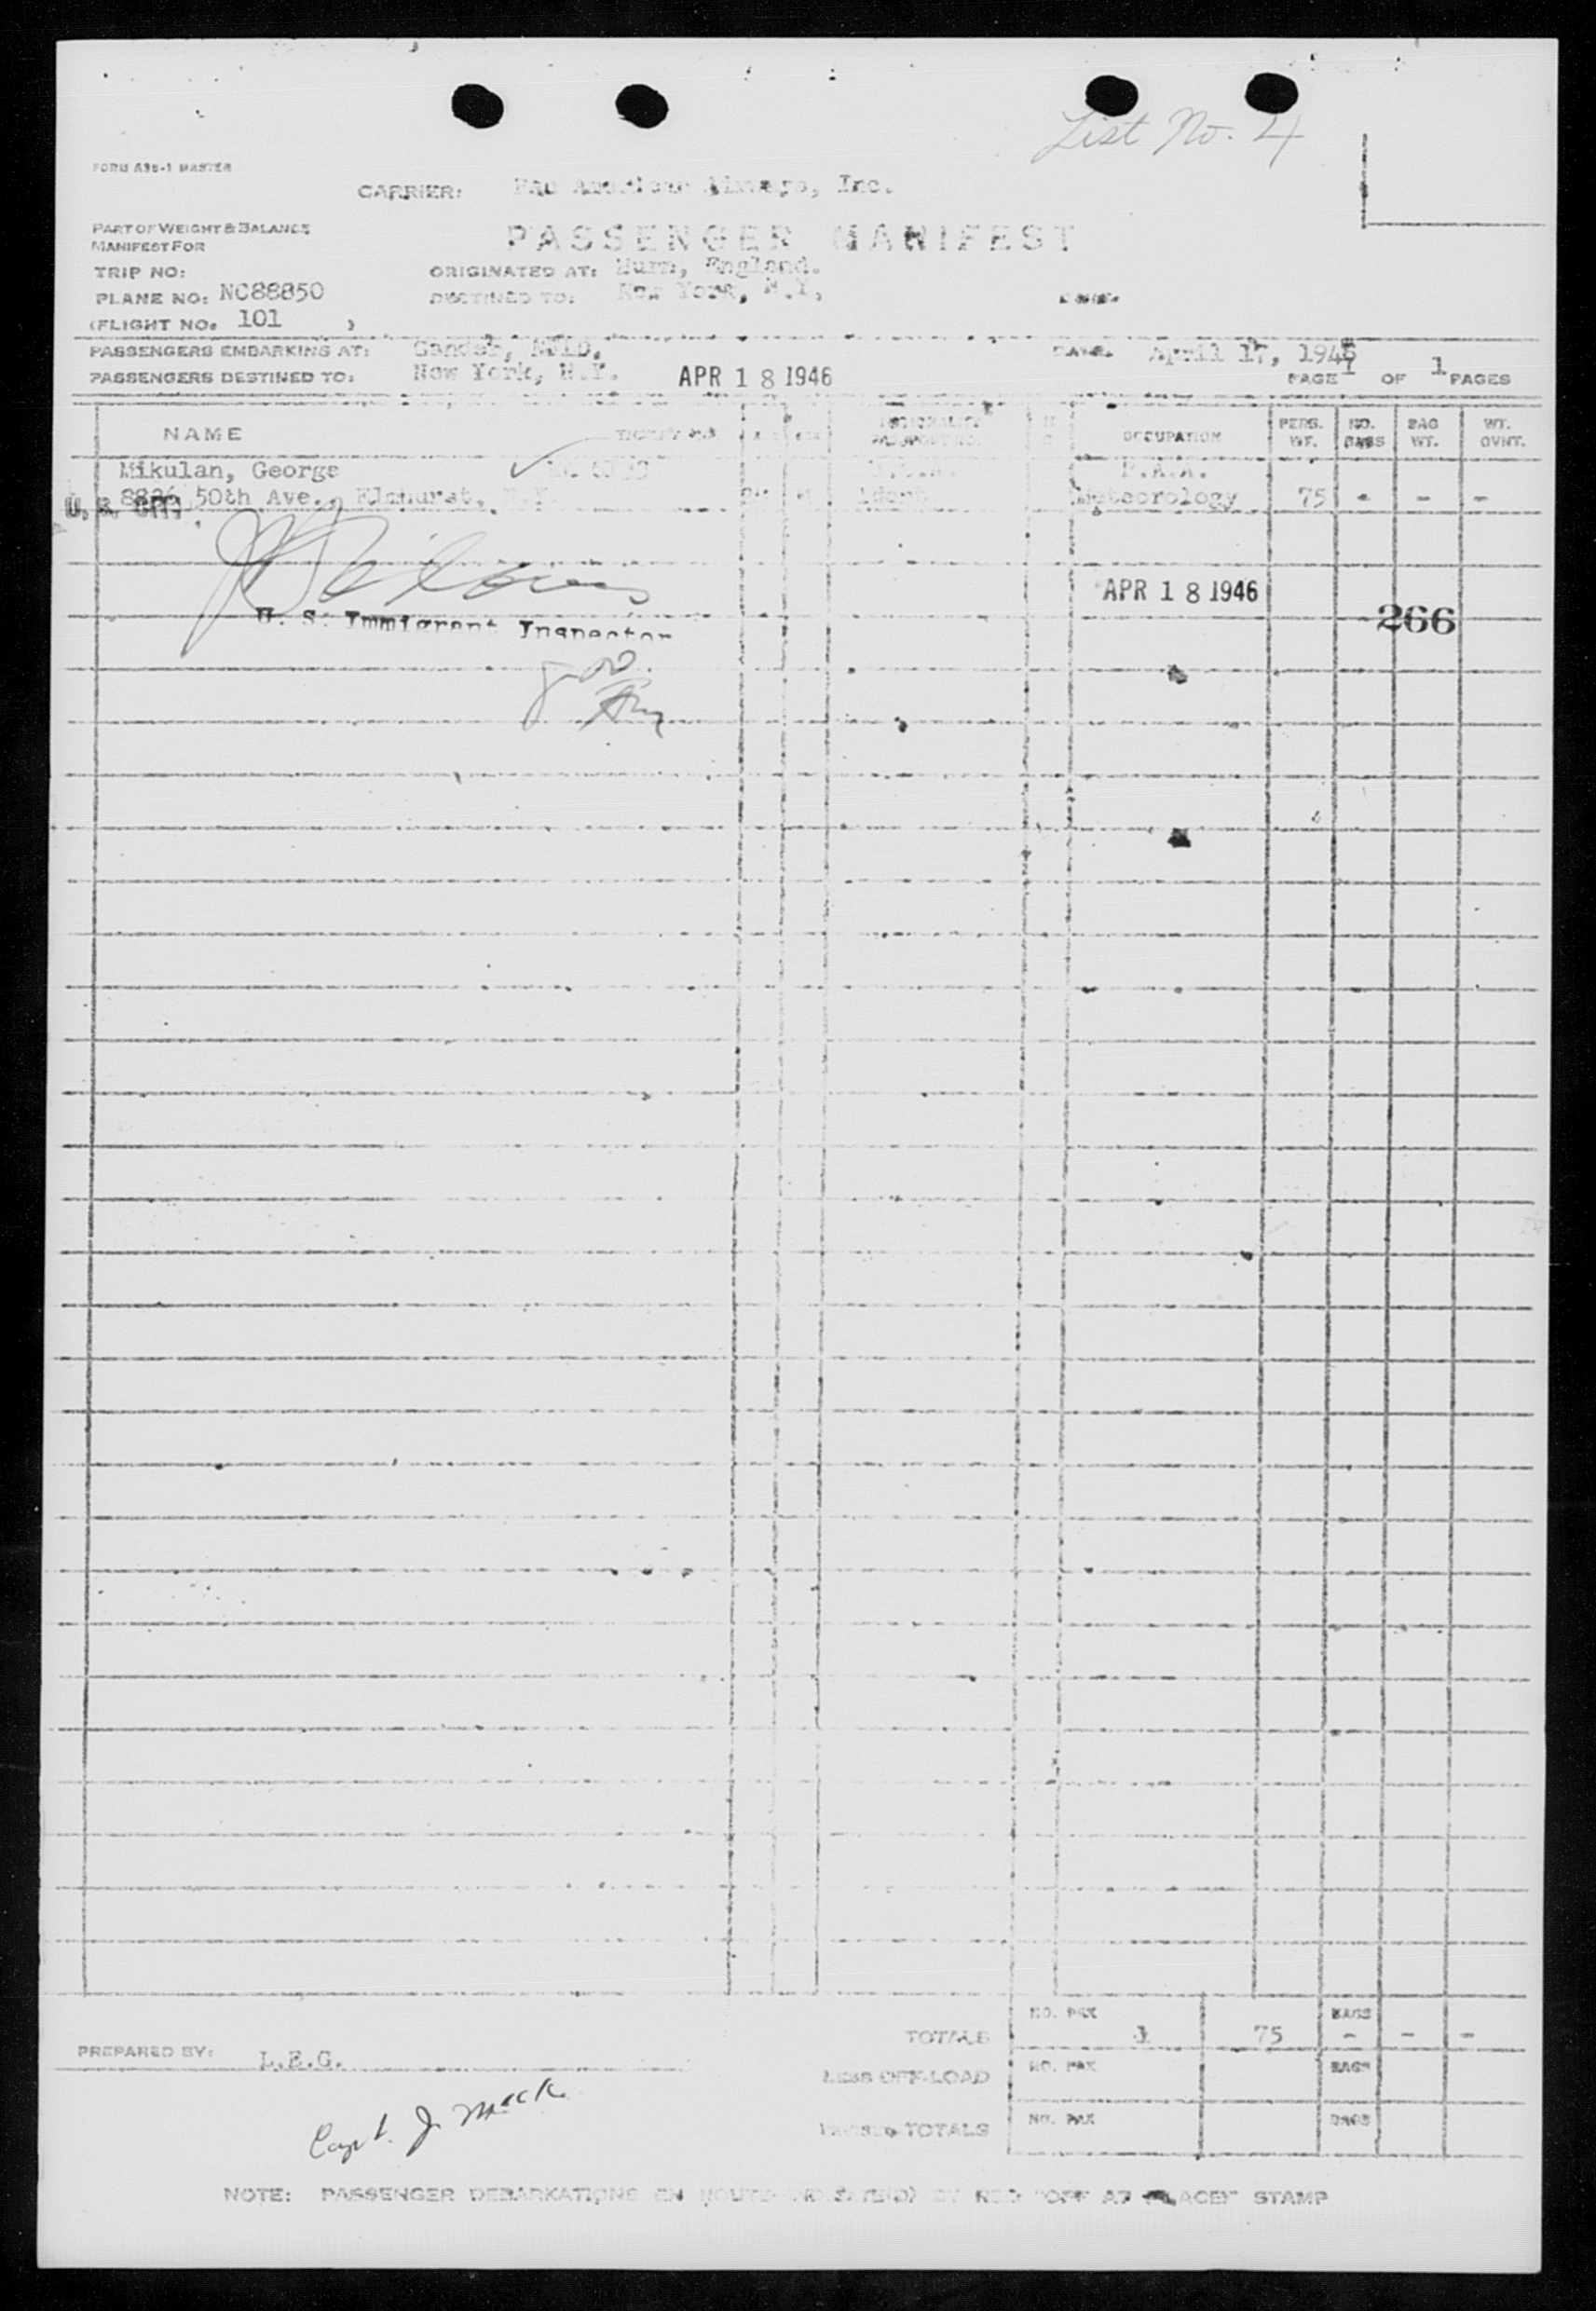 List No. 4
FORM A35-1 MASTER
CARRIER: Pan American Airways, Inc.
PART OF WEIGHT & BALANCE
MANIFEST FOR
PASSENGER MANIFEST
TRIP NO:
ORIGINATED AT: Hurn, England.
PLANE NO: NC88850
DESTINED TO: New York, N.Y.
(FLIGHT NO. 101 )
PASSENGERS EMBARKING AT: Gander, NFLD.
DATE: April 17, 1946
PASSENGERS DESTINED TO: New York, N.Y.
APR 18 1946
PAGE 1 OF 1 PAGES
NAME
OCCUPATION
PERS. WT.
NO. BAGS
BAG WT.
WT. OVNT.
Mikulan, George
P.A.A.
50th Ave., Elmhurst, N.Y.
Meteorology 75 - - -
APR 18 1946
266
U. S. Immigrant Inspector
TOTALS
NO. PAX 1
75
BAGS - - -
PREPARED BY: L.E.G.
LESS OFF-LOAD
NO. PAX
BAGS
Capt. J. Mack
TOTALS
NO. PAX
BAGS
NOTE: PASSENGER DEBARKATIONS EN STAMP